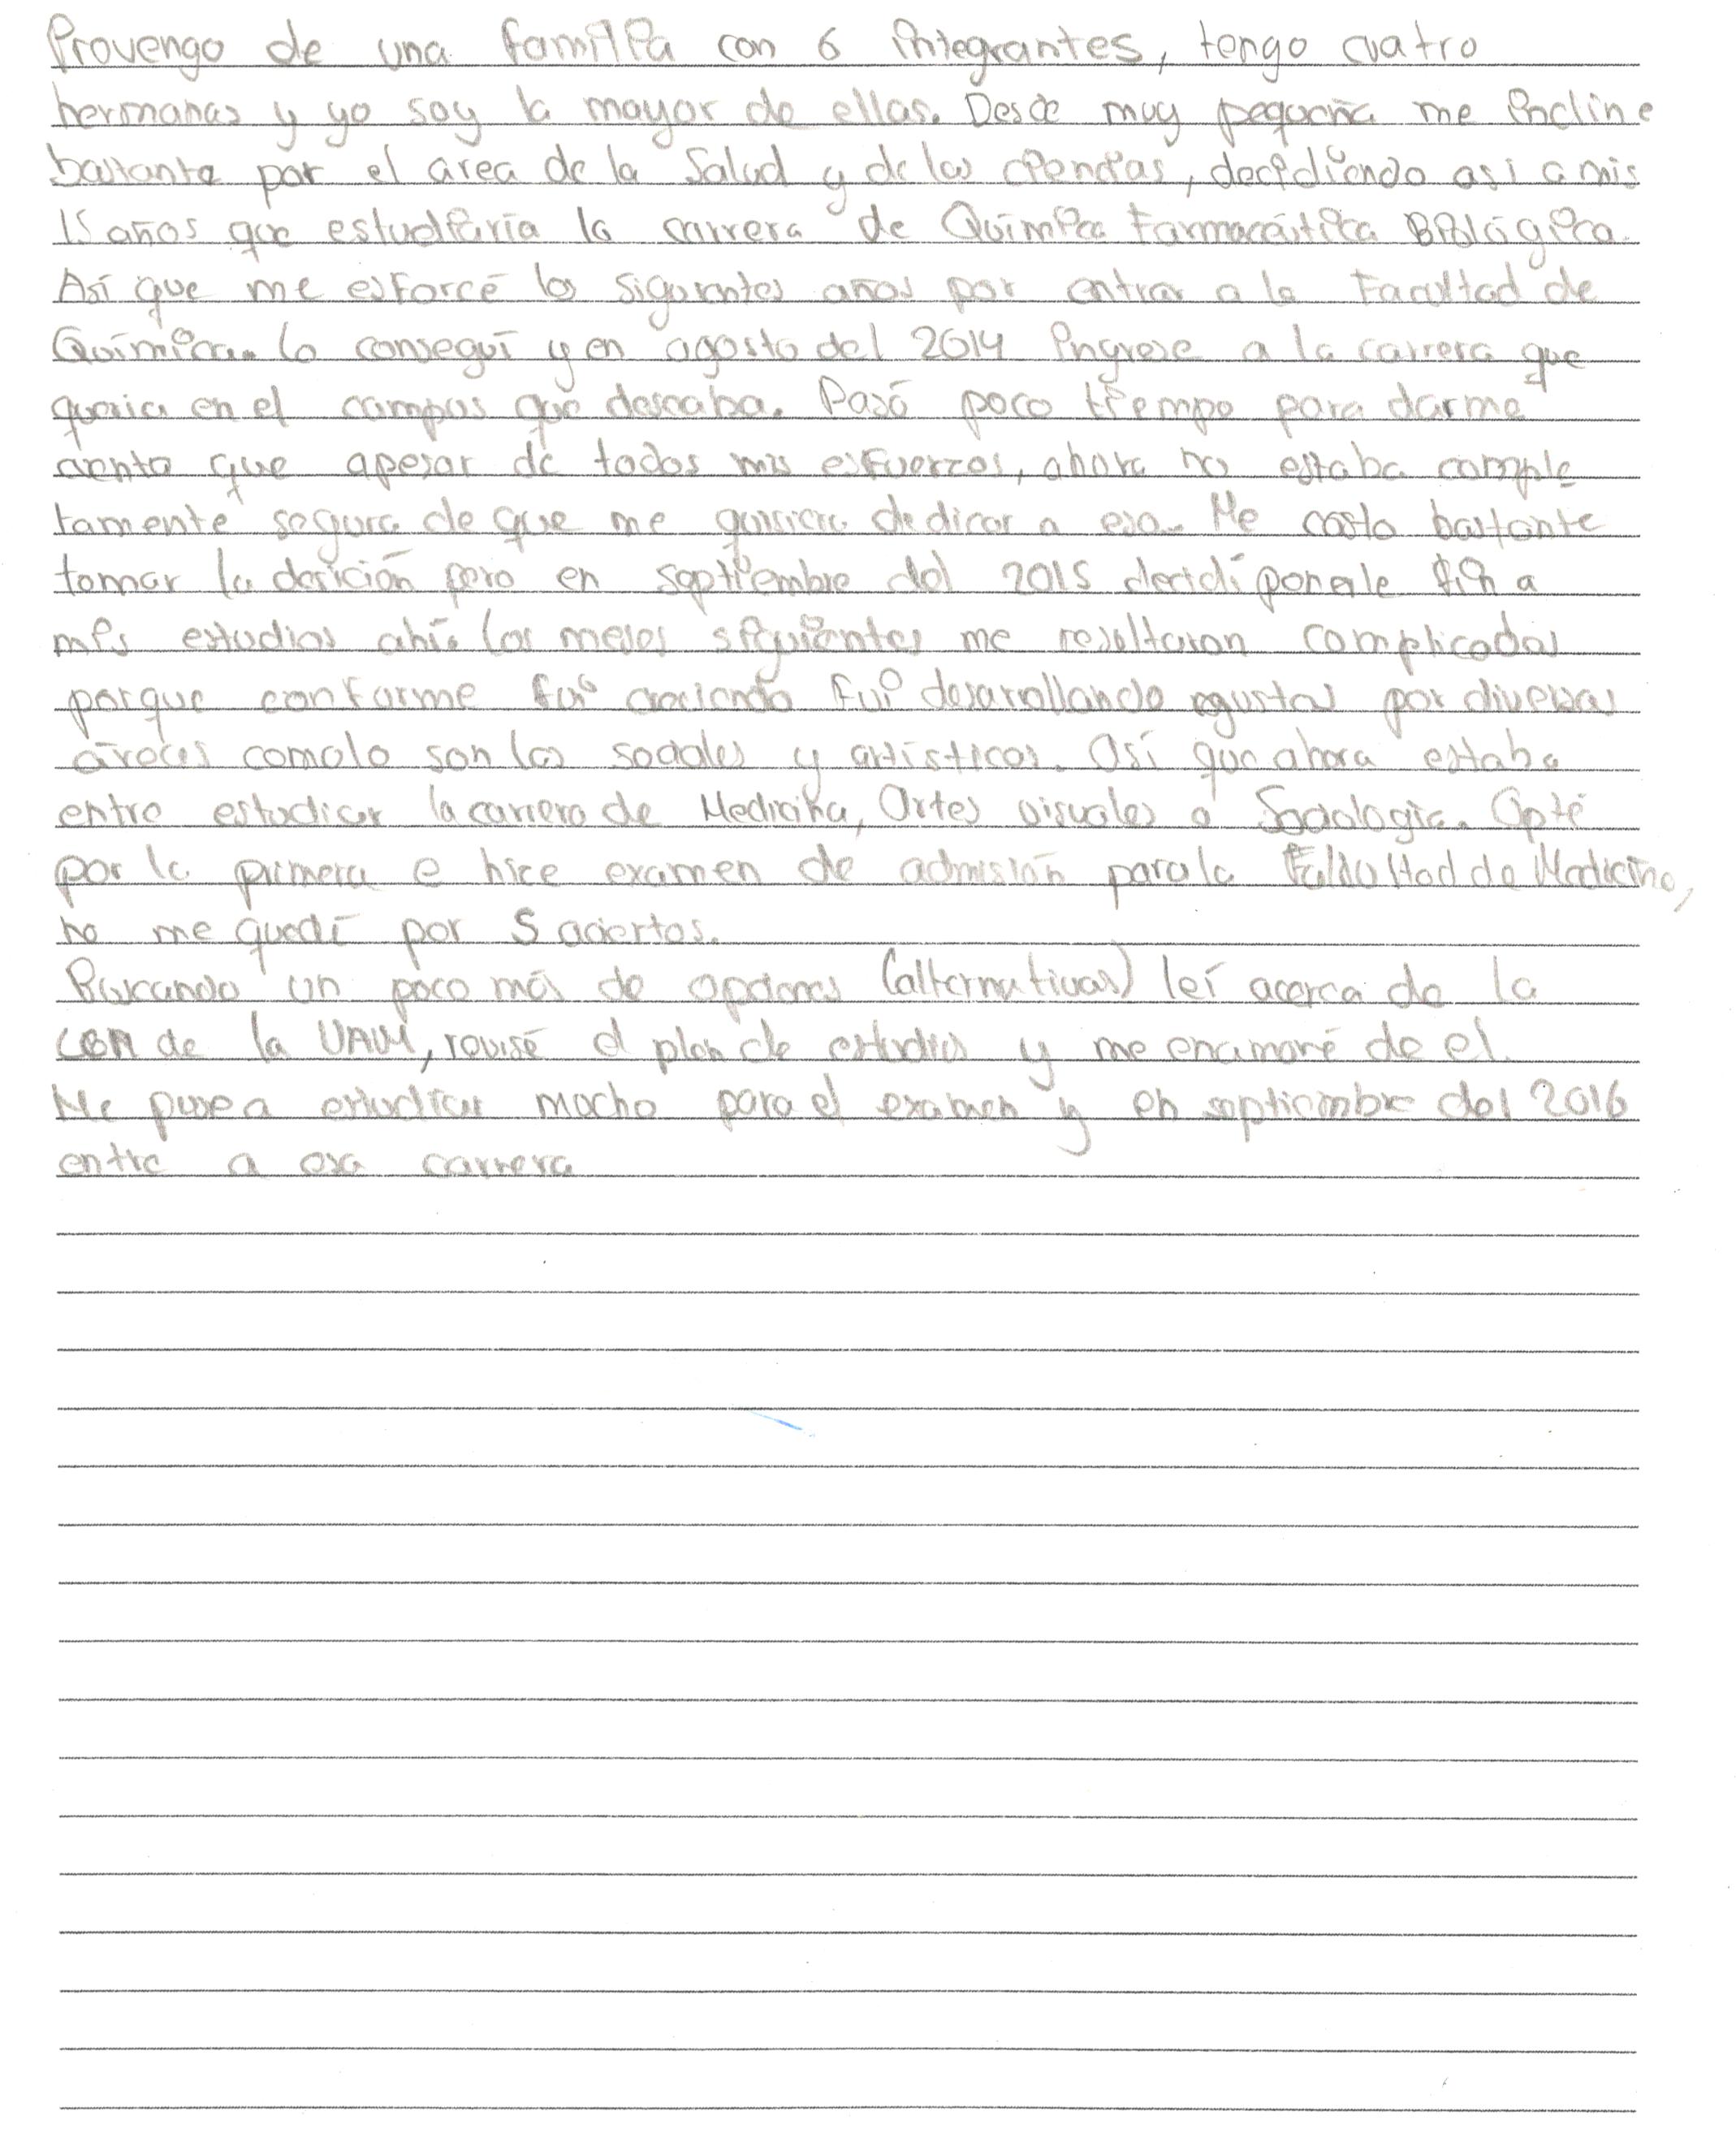 Provengo de una familia con 6 integrantes, tengo cuatro
hermanas y yo soy la mayor de ellas. Desde muy pequeña me incline
bastante por el área de la Salud y de las ciencias, decidiendo asi a mis
15 años que estudiaría la carrera de Química Farmaceútica Biológica.
Así que me esforcé los siguientes años por entrar a la Facultad de
Química. lo conseguí y en agosto del 2014 ingrese a la carrera que
queria en el campus que deseaba. Pasó poco tiempo para darme
cuenta que apesar de todos mis esfuerzos, ahora no estaba comple
tamente segura de que me quisiera dedicar a eso. Me costo bastante
tomar la decición pero en septiembre del 2015 decidí ponerle fin a
mis estudios ahí. Los meses siguientes me resultaron complicados
porque conforme fui creciendo fui desarollando gustos por diversas
áreas comolo son las sociales y artísticas. Así que ahora estaba
entre estudiar la carrera de Medicina, Artes visuales o Sociologia. Opté
por la primera e hice examen de admisión para la Facultad de Medicina,
no me quedé por 5 aciertos.
Buscando un poco más de opciones (alternativas) leí acerca de la
de la UAM, revisé el plan de estudios y me enamoré de el.
Me puse a estudiar mucho para el examen y en septiembre del 2016
entre a esa carrera